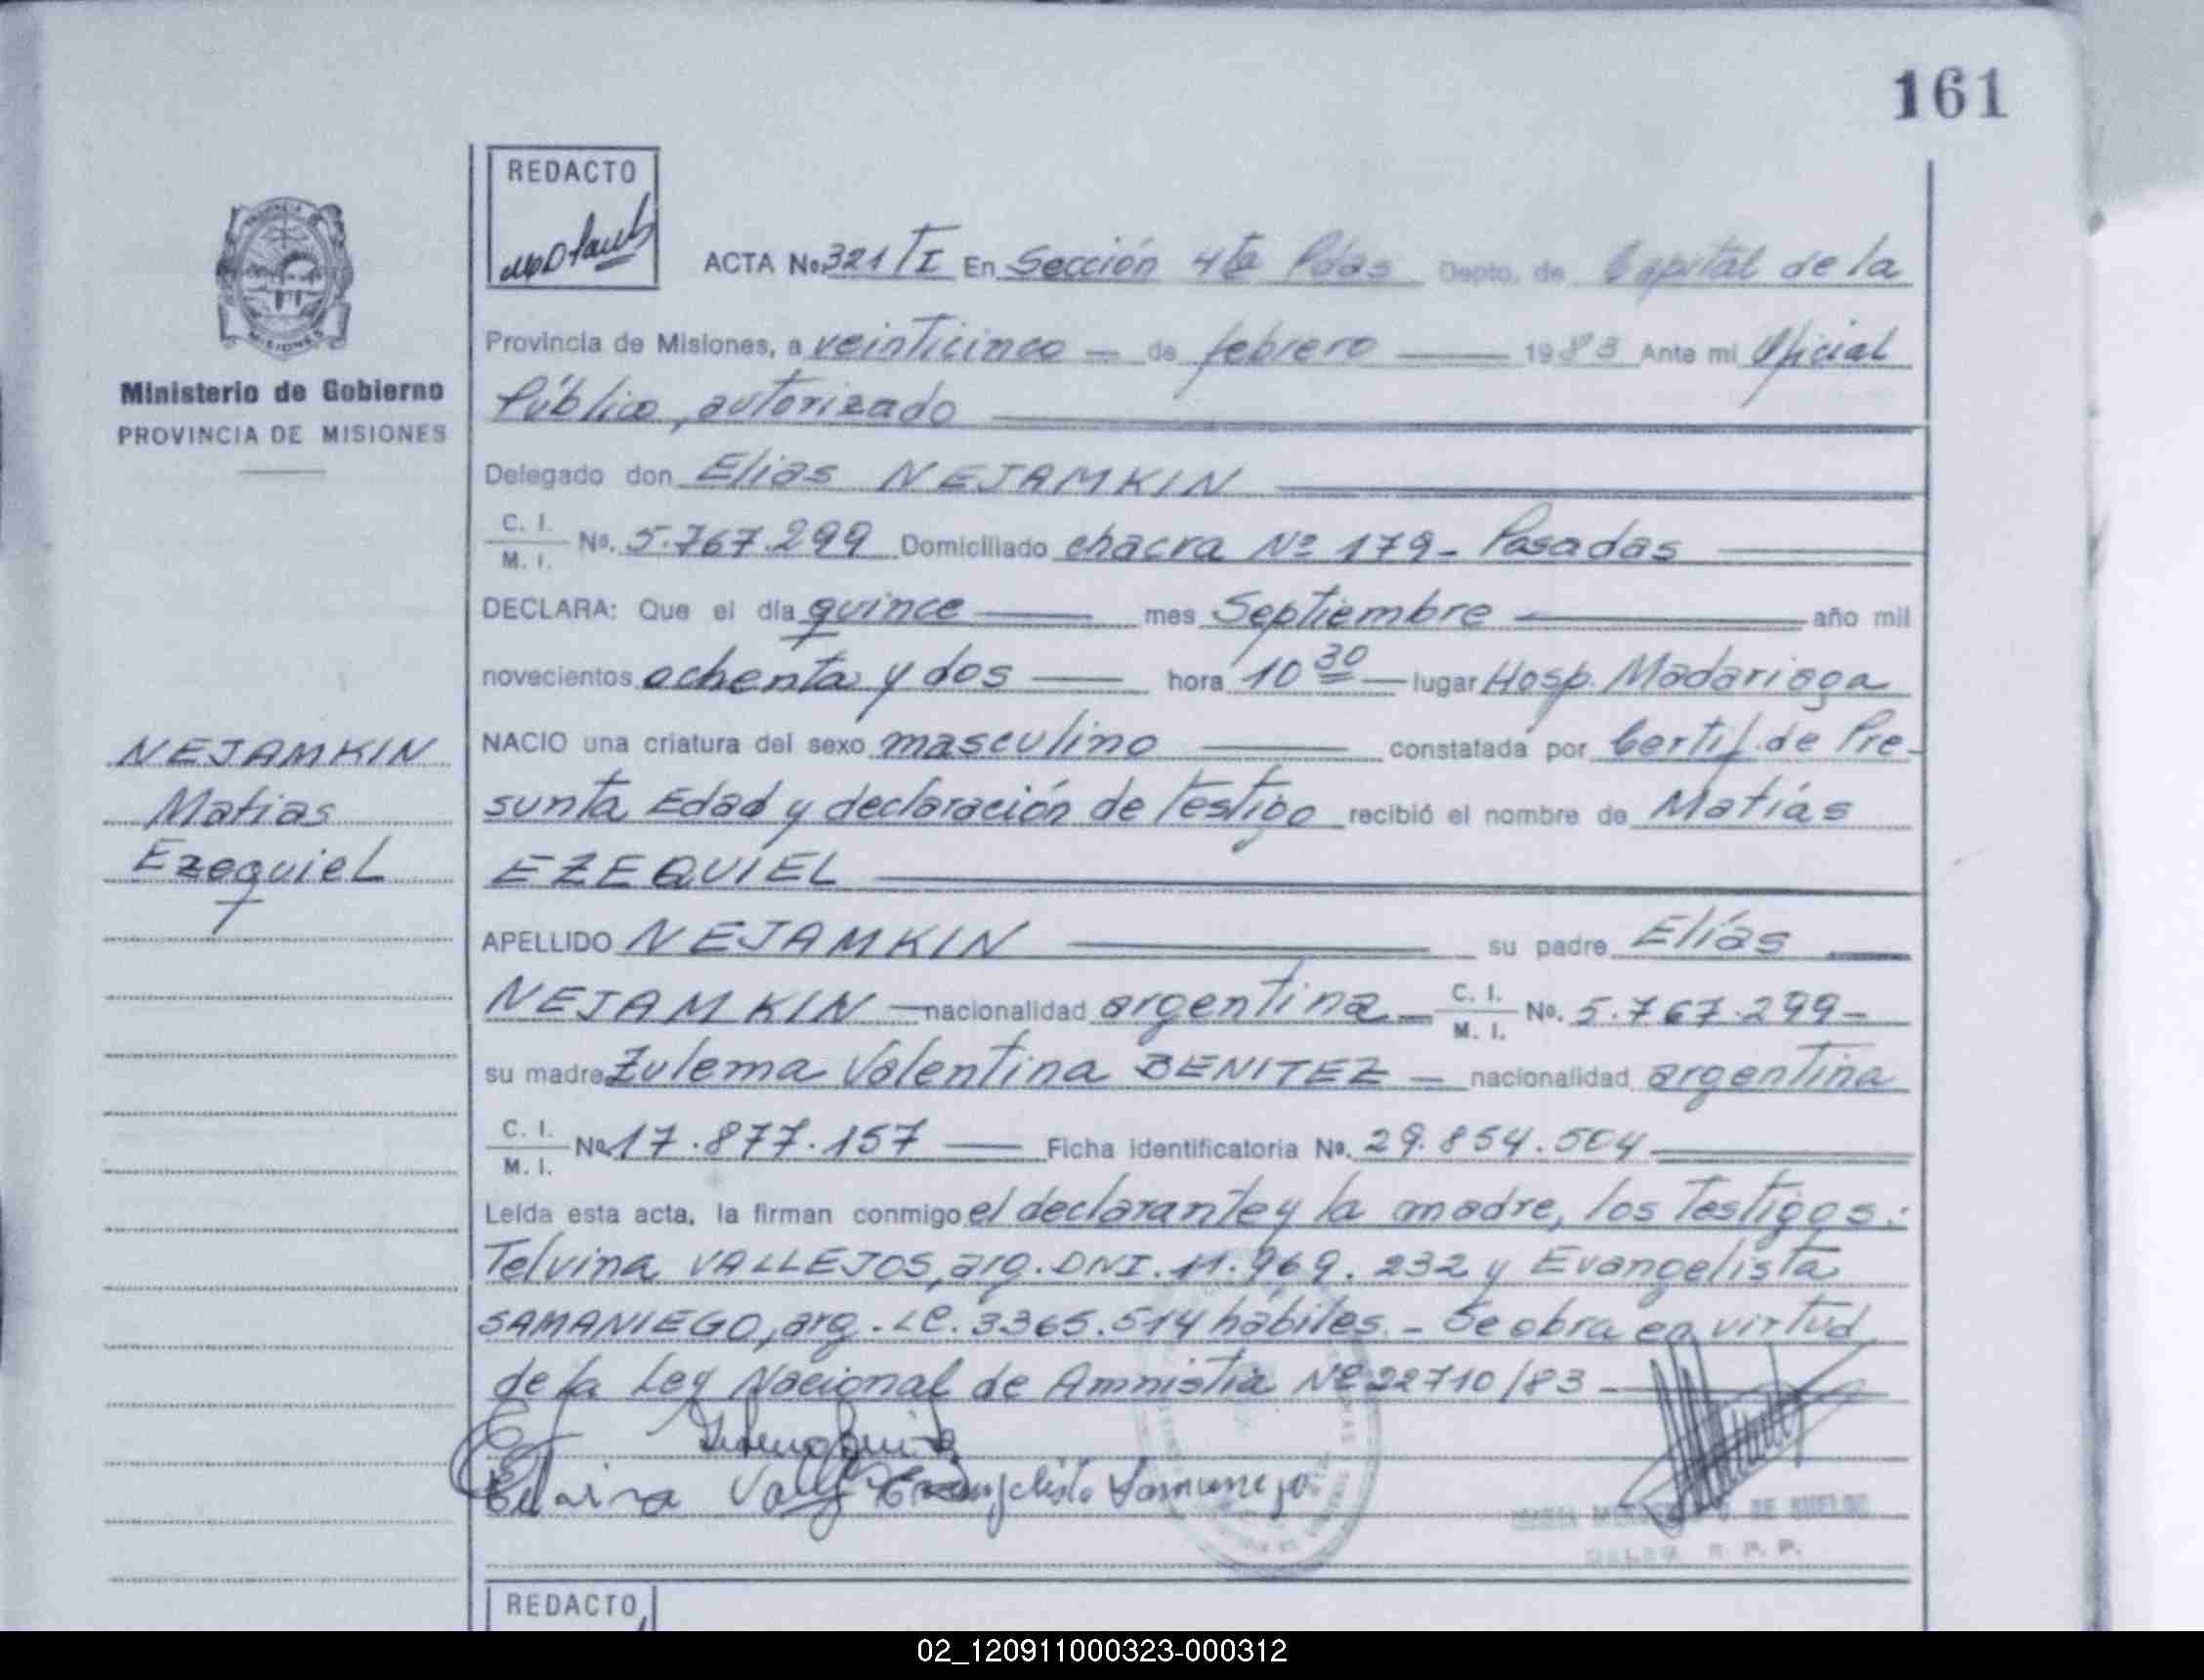 161
REDACTO
ACTA No. 321/TI En Sección 4ta Pdas Depto. de Capital de la
Provincia de Misiones, a veinticinco — de febrero — 1983 Ante mi Oficial
Público, autorizado
Ministerio de Gobierno
PROVINCIA DE MISIONES
Delegado don Elias NEJAMKIN
C. I.
M. I. No. 5.767.299 Domiciliado chacra Nº 179 - Posadas
DECLARA: Que el día quince — mes Septiembre — año mil
novecientos ochenta y dos — hora 10 30 — lugar Hosp. Madariaga
NEJAMKIN
Matias
Ezequiel
NACIO una criatura del sexo masculino — constatada por Certif. de Pre-
sunta Edad y declaración de Testigo recibió el nombre de Matías
EZEQUIEL
APELLIDO NEJAMKIN — su padre Elías —
NEJAMKIN — nacionalidad argentina — C. I. M. I. No. 5.767.299 -
su madre Zulema Valentina BENITEZ — nacionalidad argentina
C. I.
M. I. No. 17.877.157 — Ficha identificatoria No. 29.854.504
Leída esta acta, la firman conmigo el declarante y la madre, los Testigos:
Telvina VALLEJOS, arg. DNI. 11.969.232 y Evangelista
SAMANIEGO, arg. LC. 3365.514 hábiles. - Se obra en virtud
de la Ley Nacional de Amnistia Nº 22710/83 -
Evangelista Samaniego
DE SUELDO
REDACTO
02_120911000323-000312